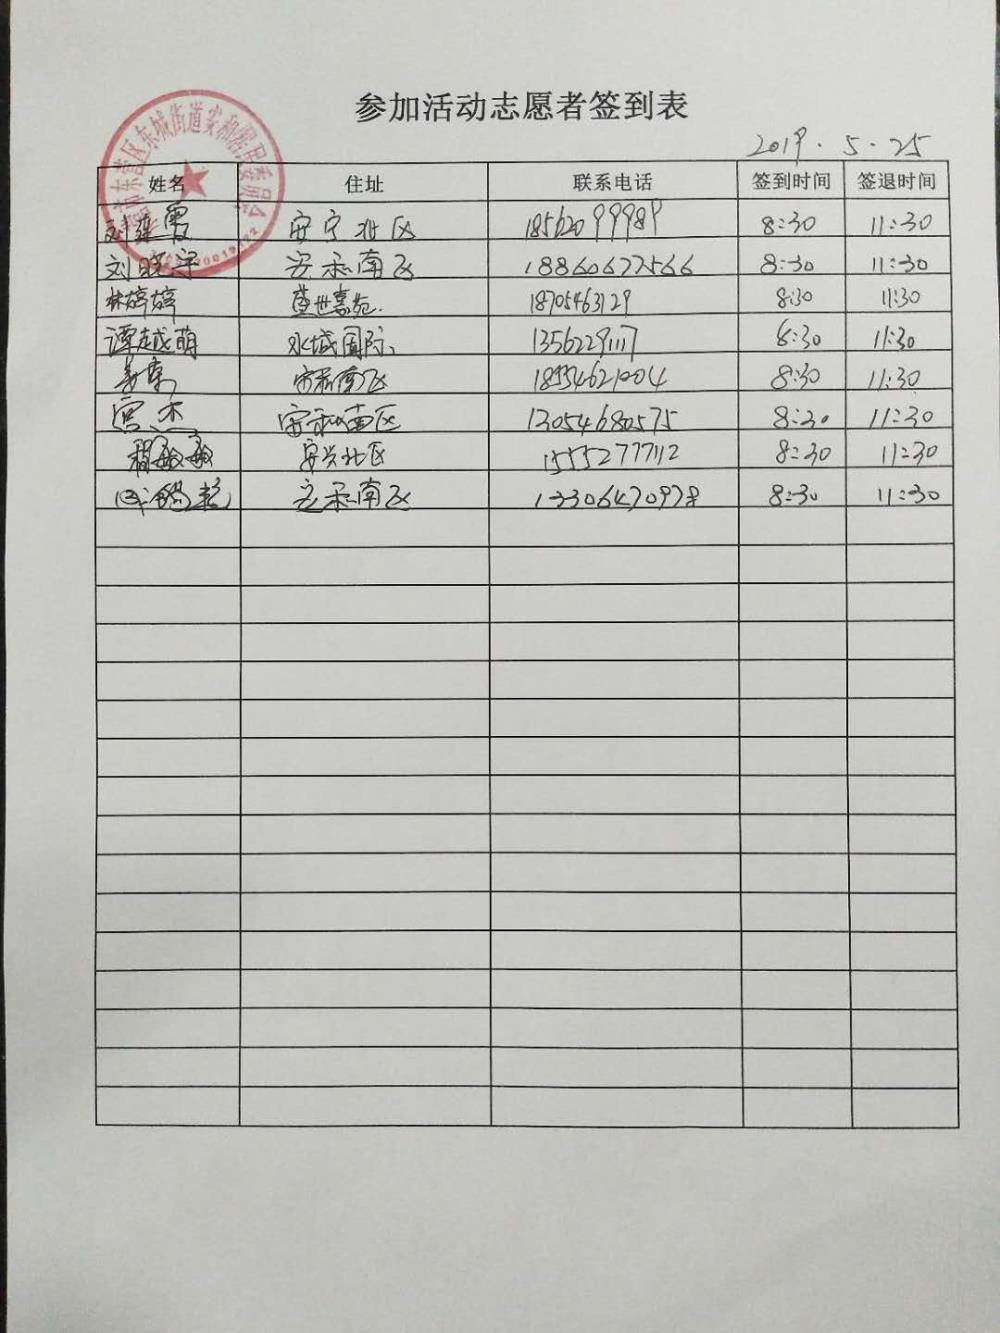 参加活动志愿者签到表
2019.5.25
东营区东城街道安和居民委员会
姓名 住址 联系电话 签到时间 签退时间
刘建霞 安宁北区 18562099989 8:30 11:30
刘晓宇 安和南区 18860677566 8:30 11:30
林婷婷 盛世嘉苑. 18705463129 8:30 11:30
谭越萌 水城国际、 13562291117 8:30 11:30
姜東 安和南区 18554621004 8:30 11:30
宫杰 安和南区 13054680575 8:30 11:30
程敏敏 安兴北区 15552777112 8:30 11:30
安和南区 13306470978 8:30 11:30